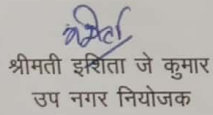 श्रीमती इशिता जे कुमार
उप नगर नियोजक